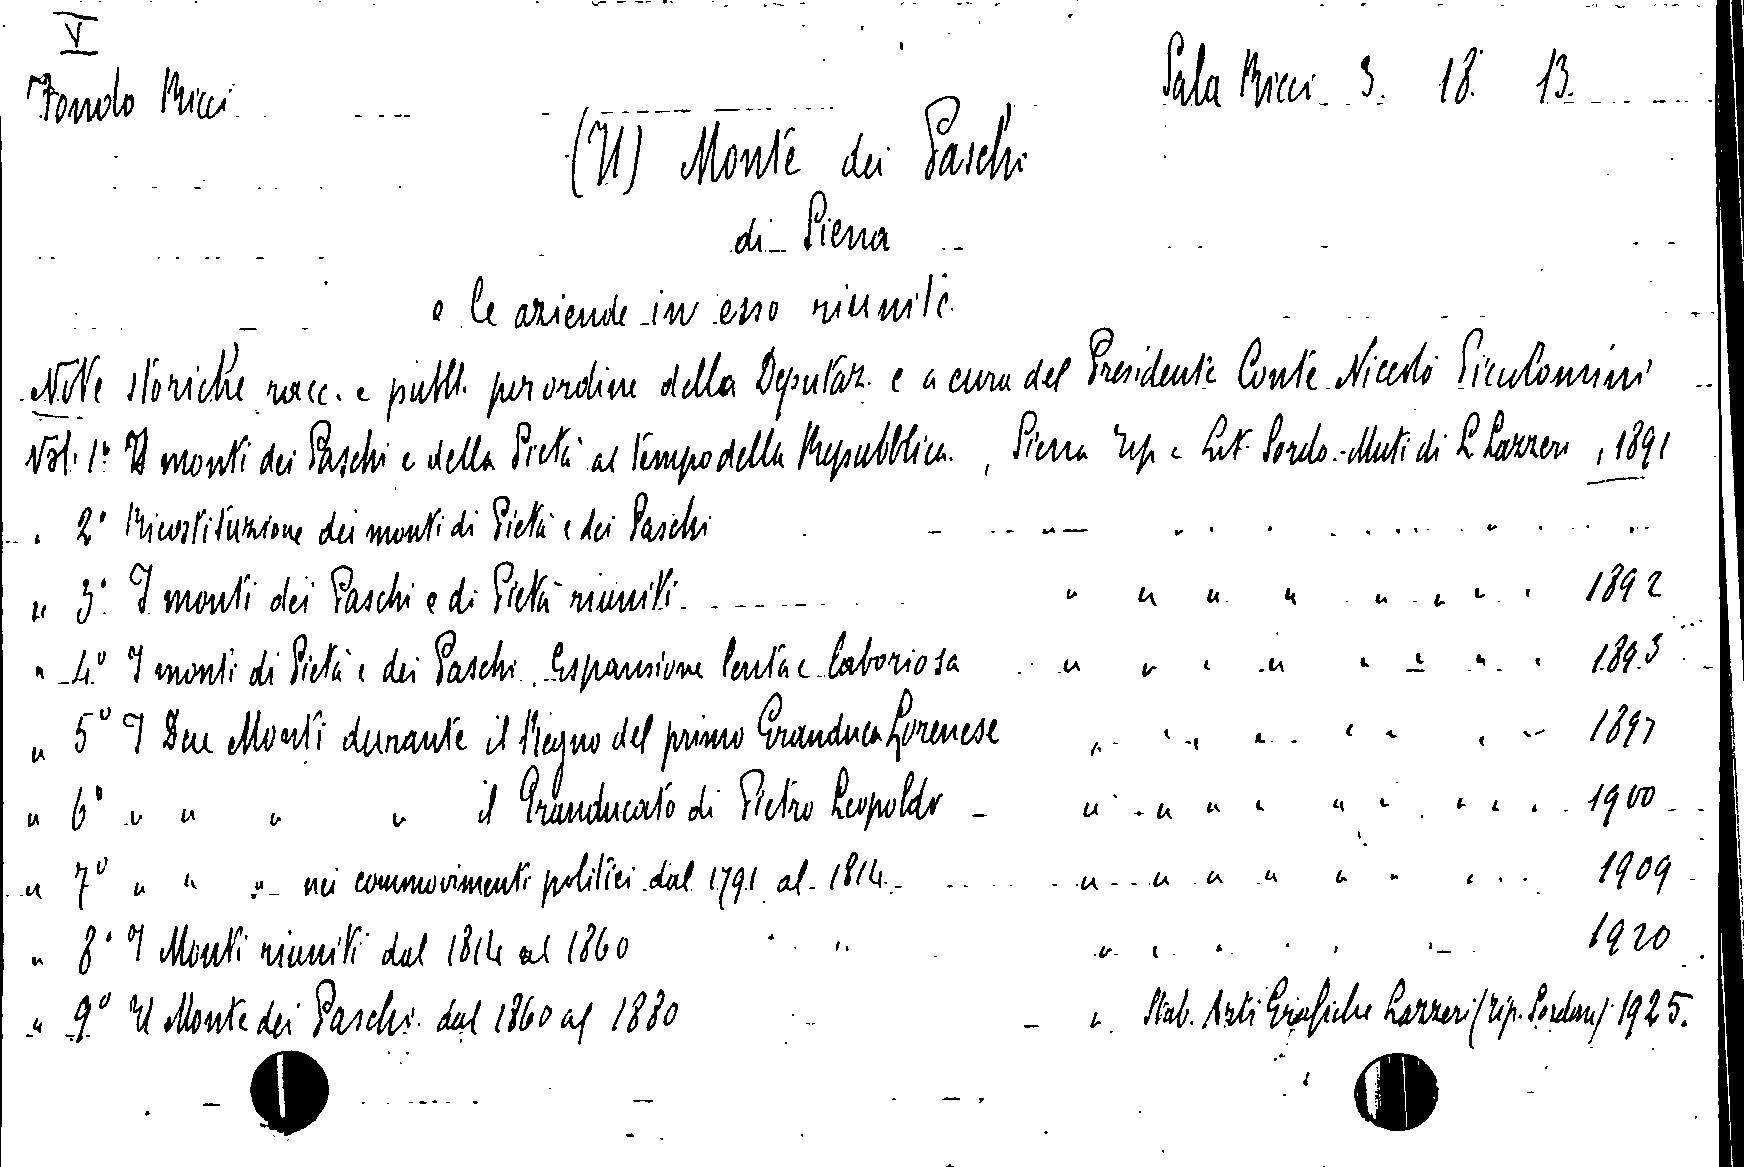 V
Fondo Ricci
Sala Ricci 3. 18. 13.
(Il) Monte dei Paschi
di Siena
e le aziende in esso riunite.
Note storiche racc. e pubbl. per ordine della Deputaz. e a cura del Presidente Conte Niccolò Piccolomini
Vol. 1° I monti dei Paschi e della Pietà al tempo della Repubblica. , Siena Tip e Lit. Sordo-Muti di L Lazzeri , 1891
" 2° Ricostituzione dei monti di Pietà e dei Paschi " " " " " " "
" 3° I monti dei Paschi e di Pietà riuniti. " " " " " " " " 1892
" 4° I monti di Pietà e dei Paschi. Espansione lenta e laboriosa " " " " " " " " 1893
" 5° I Due Monti durante il Regno del primo Granduca Lorenese " " " " " " " " 1897
" 6° " " " " il Granducato di Pietro Leopoldo " " " " " " " " " 1900
" 7° " " " nei commovimenti politici dal 1791 al 1814 " " " " " " " " 1909
" 8° I Monti riuniti dal 1814 al 1860 " " " " " " 1920
" 9° Il Monte dei Paschi dal 1860 al 1880 " Stab. Arti Grafiche Lazzeri (Tip. Sordom) 1925.